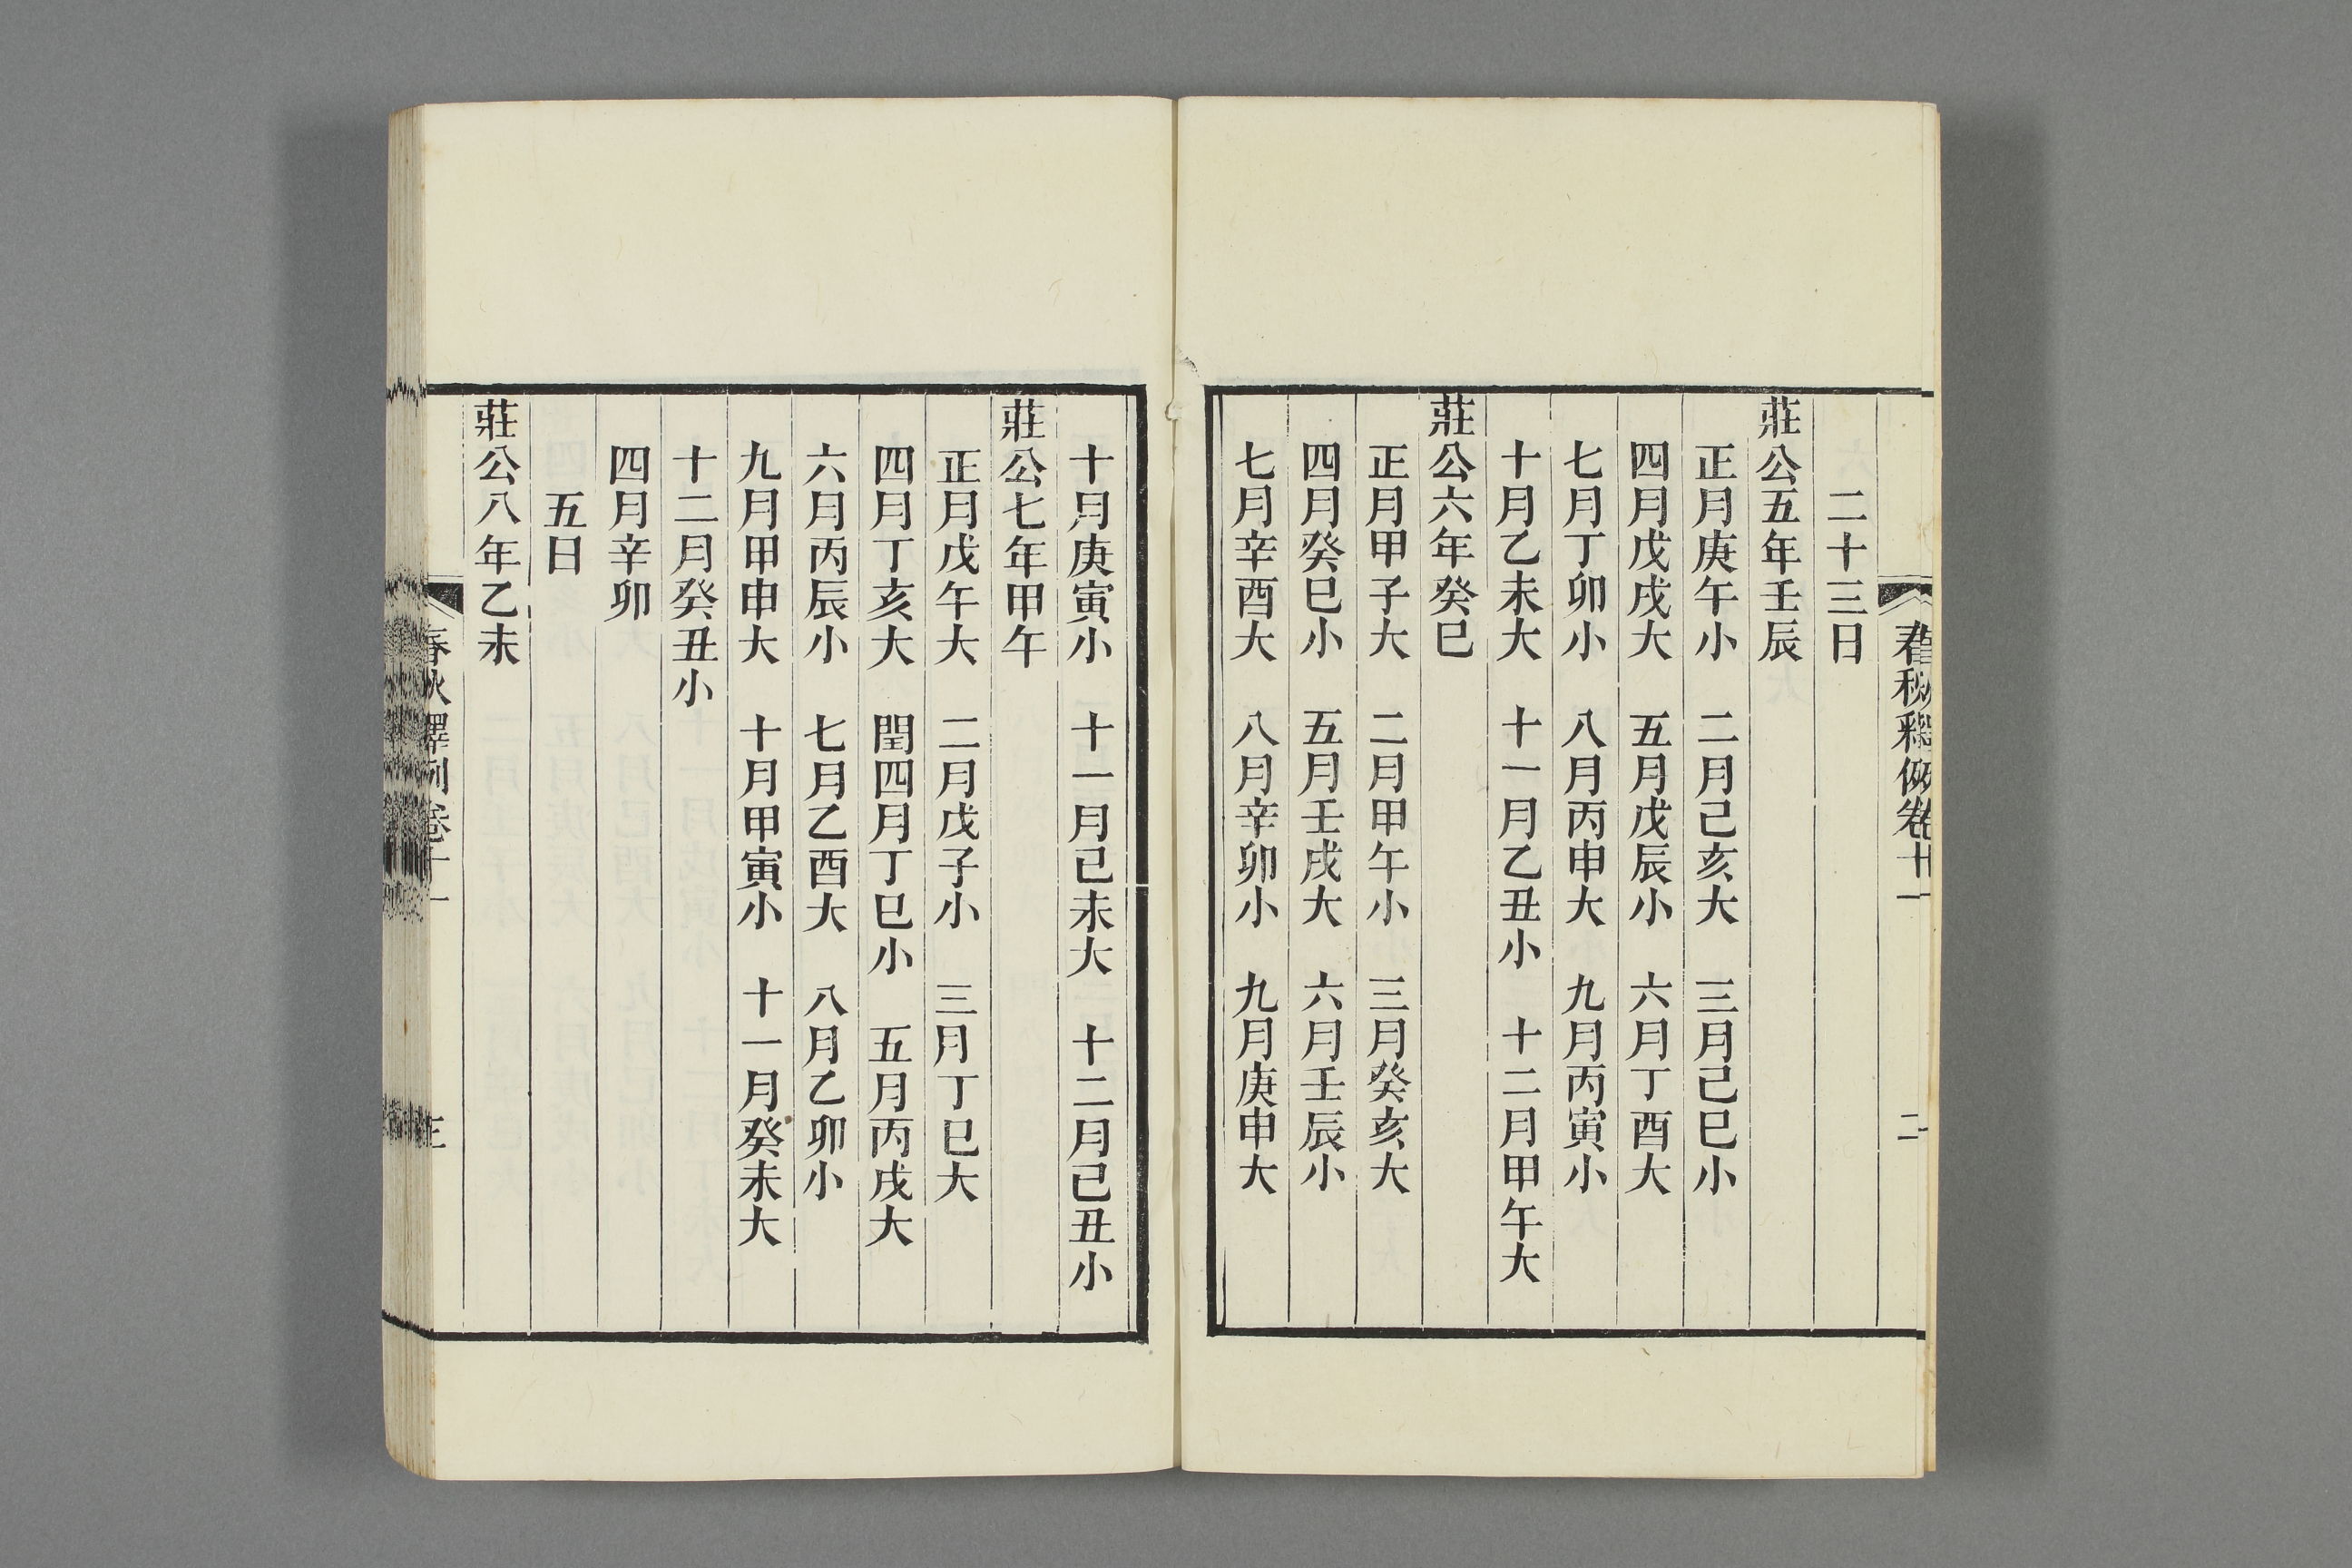 春秋釋例卷十一
二
二十三日
莊公五年壬辰
正月庚午小　二月己亥大　三月己巳小
四月戊戌大　五月戊辰小　六月丁酉大
七月丁卯小　八月丙申大　九月丙寅小
十月乙未大　十一月乙丑小　十二月甲午大
莊公六年癸巳
正月甲子大　二月甲午小　三月癸亥大
四月癸巳小　五月壬戌大　六月壬辰小
七月辛酉大　八月辛卯小　九月庚申大
十月庚寅小　十一月己未大　十二月己丑小
莊公七年甲午
正月戊午大　二月戊子小　三月丁巳大
四月丁亥大　閏四月丁巳小　五月丙戌大
六月丙辰小　七月乙酉大　八月乙卯小
九月甲申大　十月甲寅小　十一月癸未大
十二月癸丑小
四月辛卯
五日
莊公八年乙未
春秋釋例卷十一
三